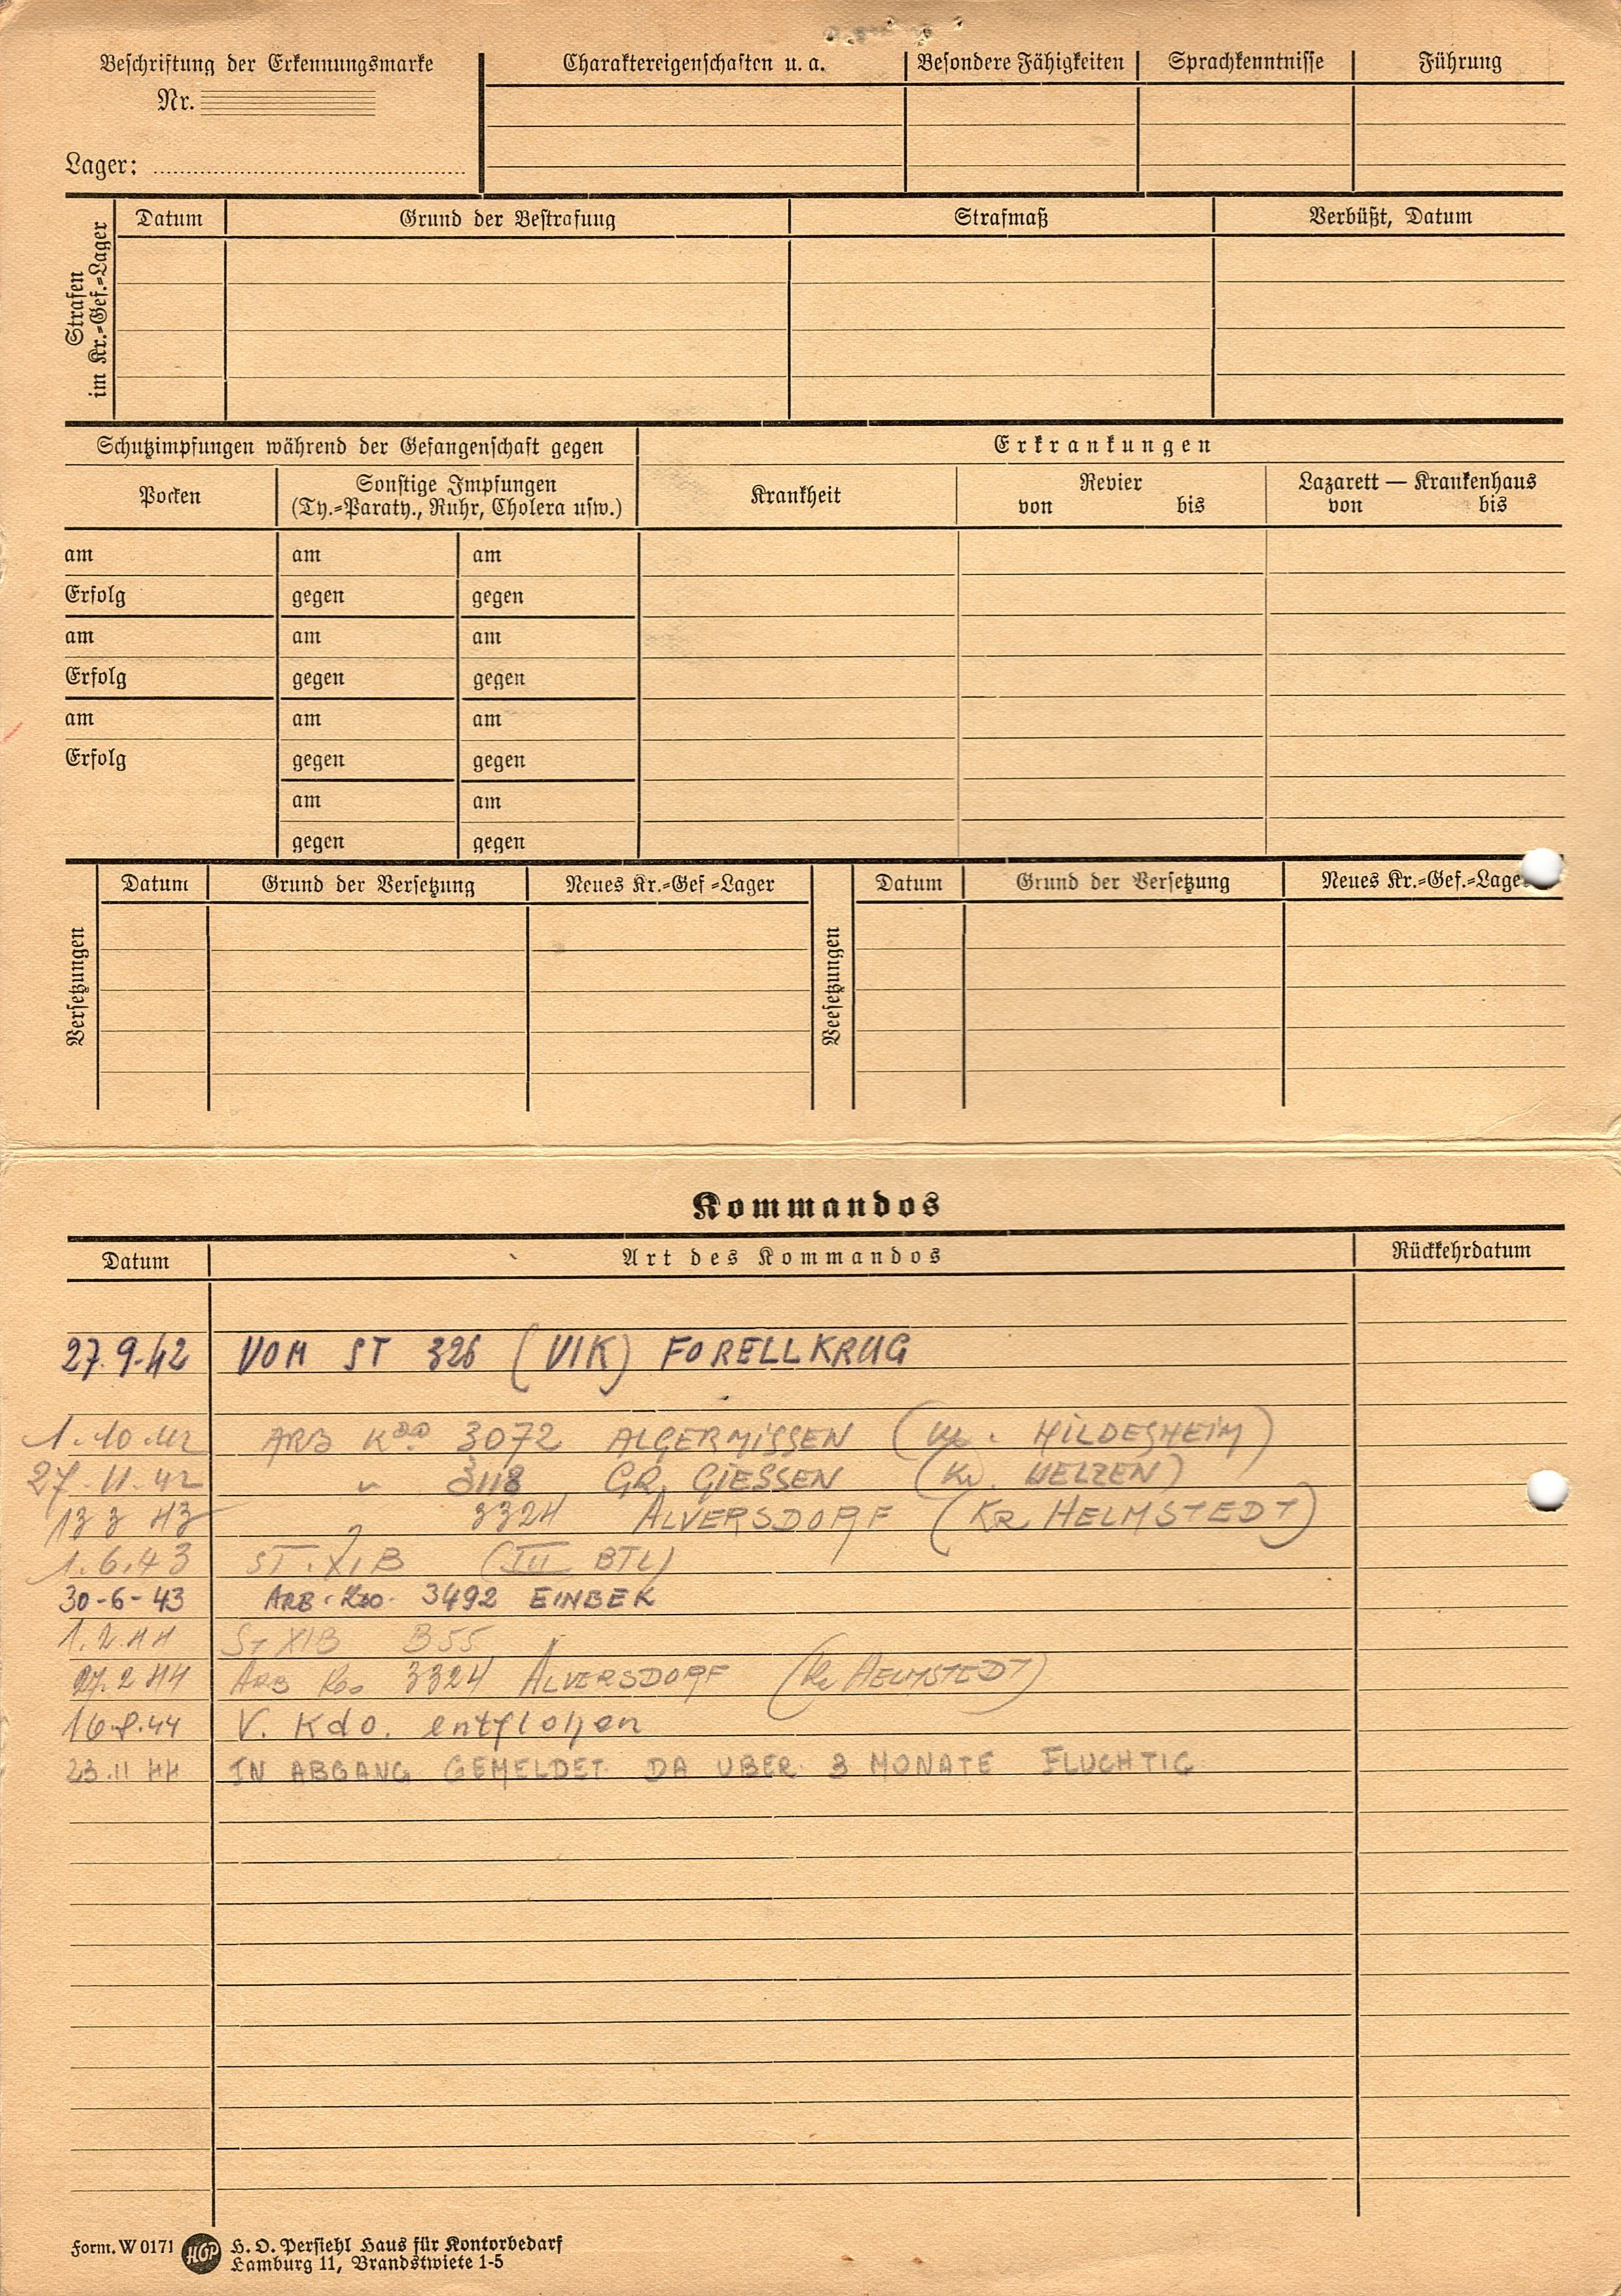 Beschriftung der Erkennungsmarke
Nr.
Lager:
Charaktereigenschaften u. a.
Besondere Fähigkeiten
Sprachkenntnisse
Führung
Strafen
im Kr.=Gef.=Lager
Datum
Grund der Bestrafung
Strafmaß
Verbüßt, Datum
Schutzimpfungen während der Gefangenschaft gegen
Erkrankungen
Pocken
Sonstige Impfungen
(Ty.=Paraty., Ruhr, Cholera usw.)
Krankheit
Revier
von bis
Lazarett — Krankenhaus
von bis
am am am
Erfolg gegen gegen
am am am
Erfolg gegen gegen
am am am
Erfolg gegen gegen
am am
gegen gegen
Versetzungen
Datum Grund der Versetzung Neues Kr.=Gef =Lager
Veesetzungen
Datum Grund der Versetzung Neues Kr.=Gef.=Lage
Kommandos
Datum Art des Kommandos Rückkehrdatum
27.9.42 VOM ST 326 (VIK) FORELLKRUG
1.10.42 ARB KDO 3072 ALGERMISSEN ( HILDESHEIM)
27.11.42 " 3118 GR. GIESSEN (Kr. UELZEN)
13 3 43 3324 ALVERSDORF (KR HELMSTEDT)
1.6.43 ST. XI B (III BTL)
30-6-43 ARB. KDO. 3492 EINBEK
1.2.44 ST XIB B55
27.2 44 ARB KDO 3324 ALVERSDORF (Kr HELMSTEDT)
16.8.44 V. Kdo. entflohen
23.11 44 IN ABGANG GEMELDET DA UBER 3 MONATE FLUCHTIG
Form. W 0171 HGP H. O. Persiehl Haus für Kontorbedarf
Hamburg 11, Brandstwiete 1-5